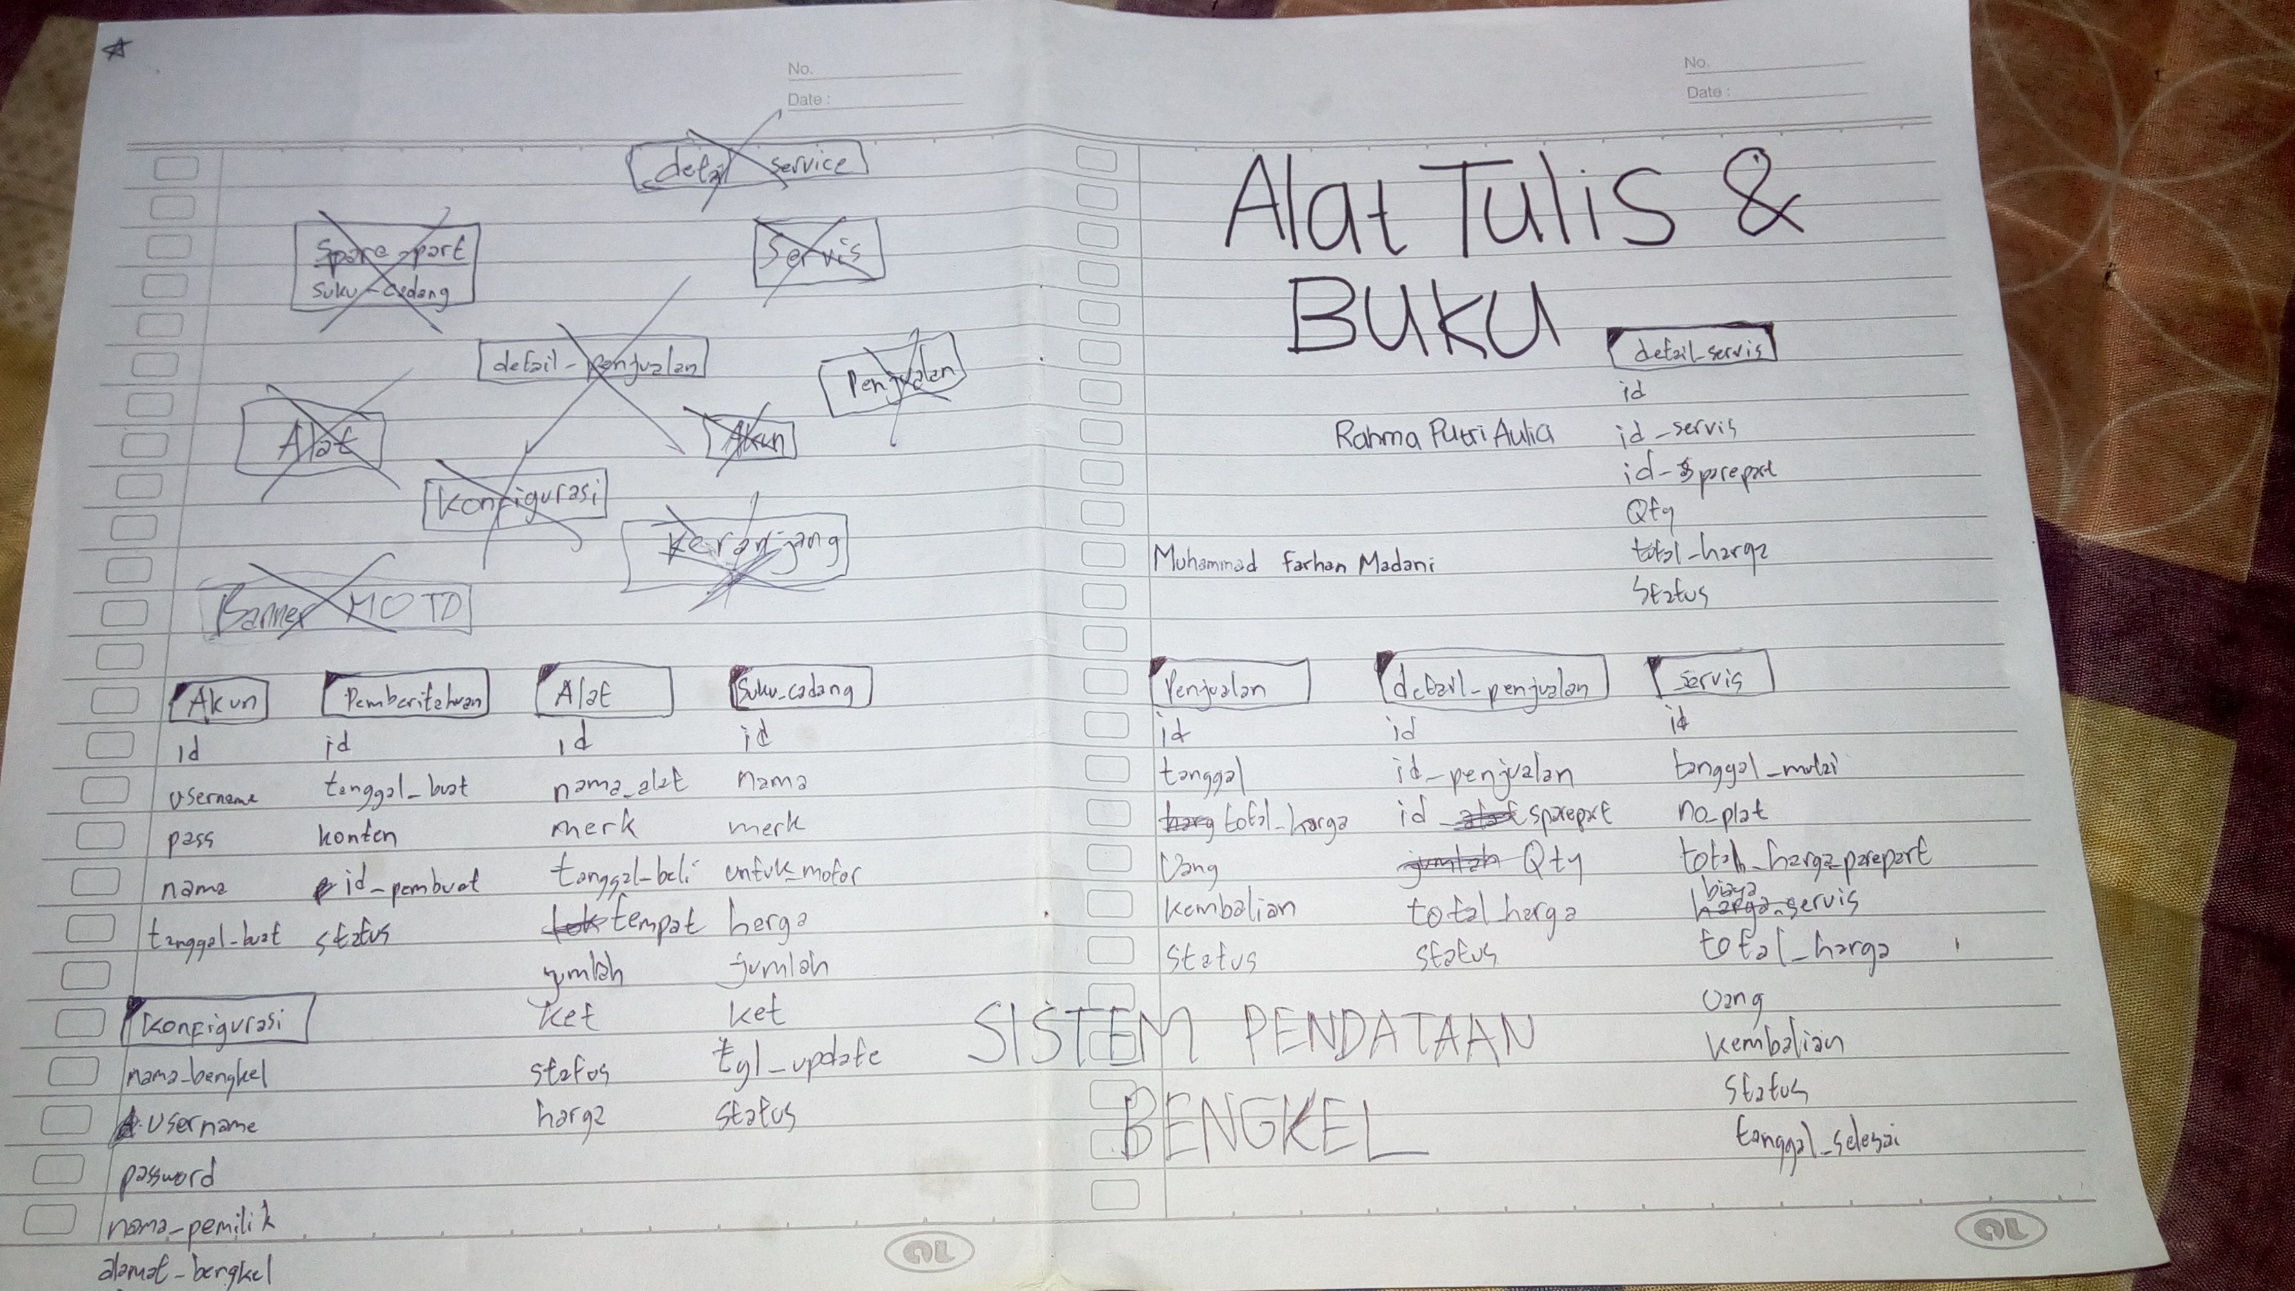 No.
Date :
detail service
Spare-part
suku-cadang
Servis
detail-penjualan
Penjualan
Alat
Akun
Konfigurasi
Keranjang
Banner MOTD
Akun
id
username
pass
nama
tanggal_buat
Pemberitahuan
id
tanggal_buat
konten
id_pembuat
status
Alat
id
nama_alat
merk
tanggal_beli
tempat
jumlah
ket
status
harga
Suku_cadang
id
nama
merk
untuk_motor
harga
jumlah
ket
tgl_update
status
Konfigurasi
nama_bengkel
username
password
nama_pemilik
alamat_bengkel
QL
No.
Date :
Alat Tulis &
BUKU
Rahma Putri Aulia
Muhammad Farhan Madani
detail_servis
id
id_servis
id_sparepart
Qty
total_harga
status
Penjualan
id
tanggal
harg total_harga
Uang
kembalian
status
detail_penjualan
id
id_penjualan
id_alat sparepart
jumlah Qty
total harga
status
servis
id
tanggal_mulai
no_plat
total_hargaparepart
biaya
harga_servis
total_harga
Uang
kembalian
status
tanggal_selesai
SISTEM PENDATAAN
BENGKEL
QL